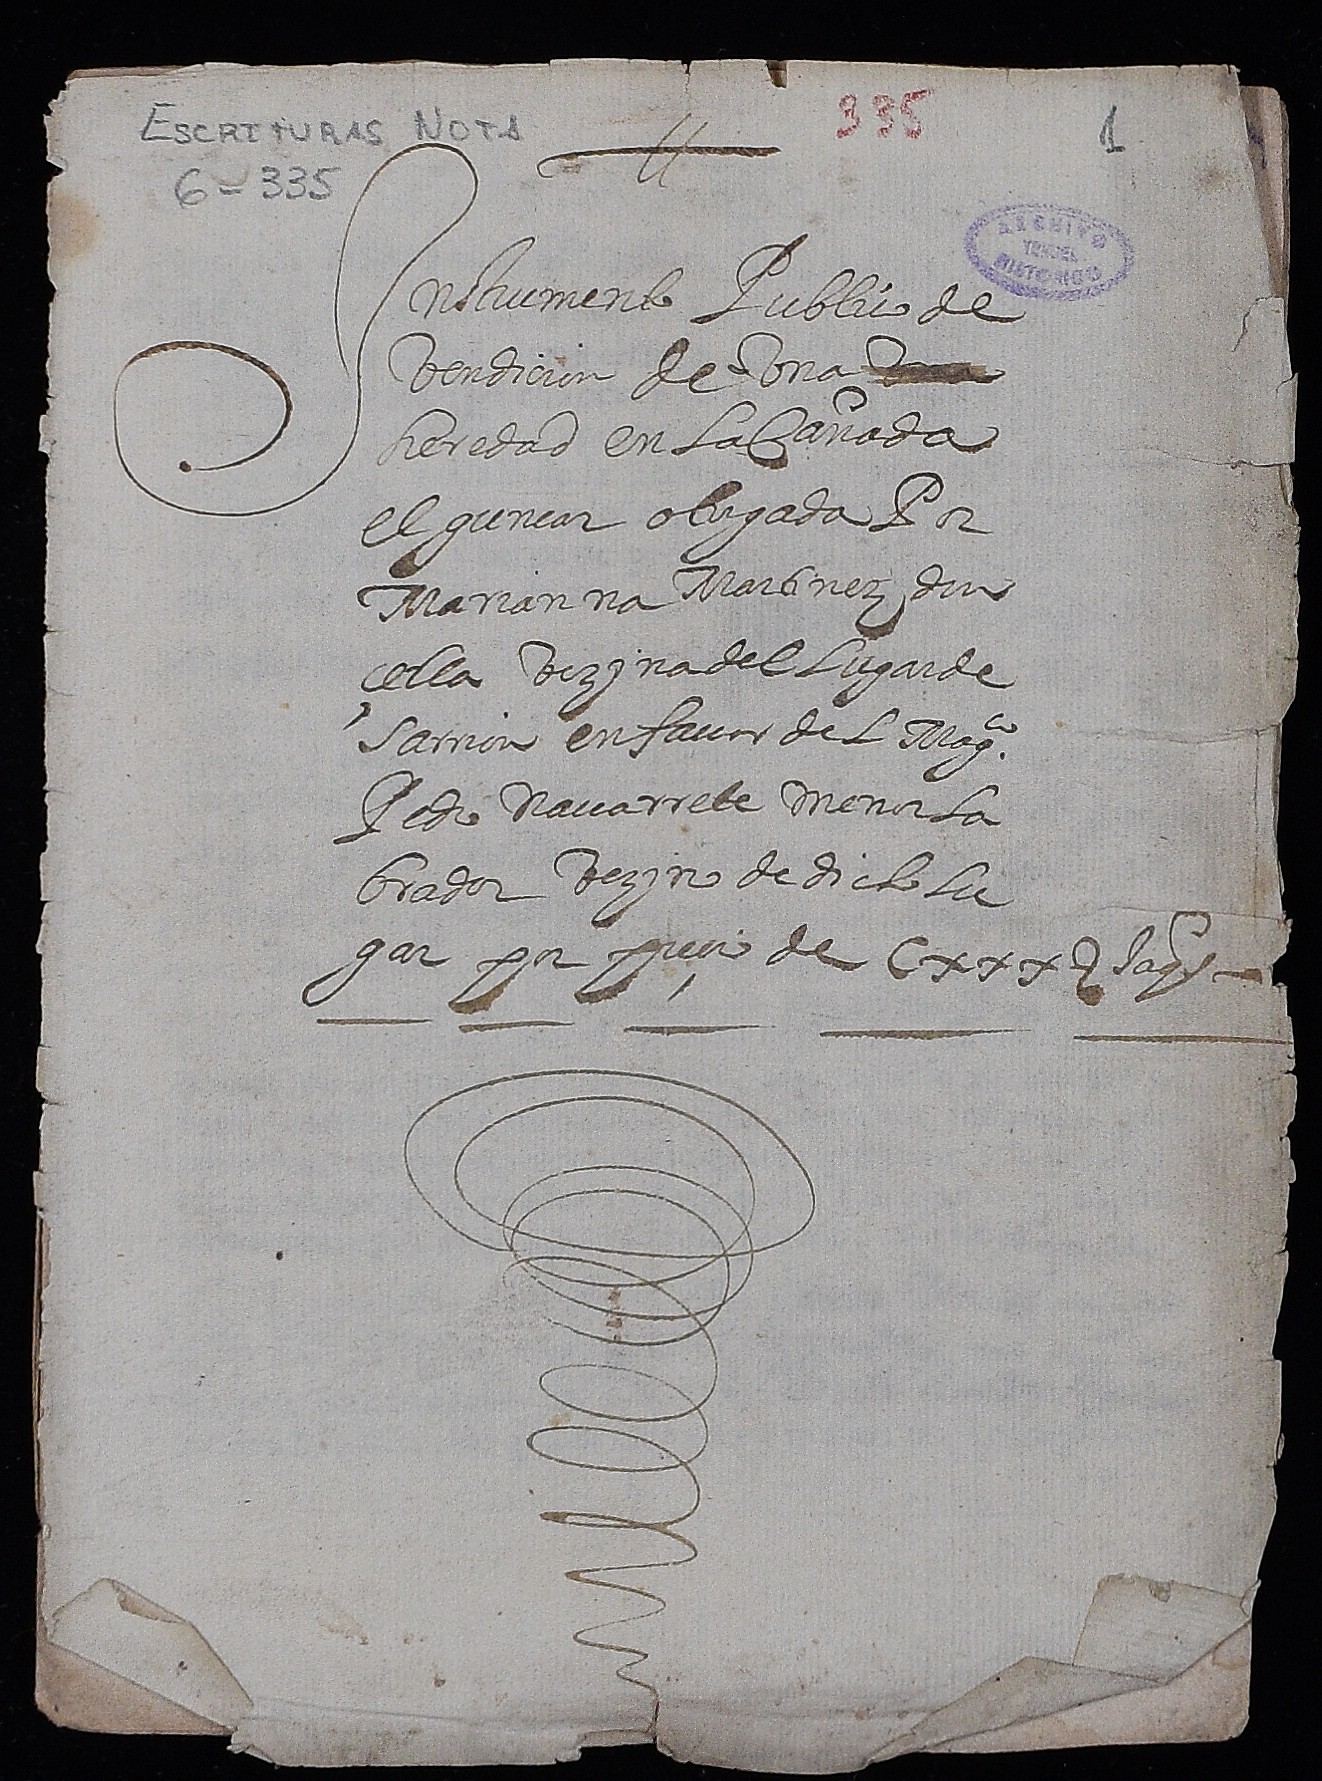 ESCRITURAS NOTA
6-335
335
1
ARCHIVO
TERUEL
HISTORICO
Instrumento Publico de
Vendicion de Una
heredad en la Cañada
el guncar otorgada Por
Marianna Martinez don
cella Vezina del Lugar de
Sarrion en favor del Mag.co
Pedro Navarrete menor la
brador Vezino de dicho lu
gar por precio de Cxxx